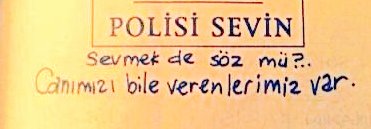 POLİSİ SEVİN
Sevmek de söz mü?..
Canımızı bile verenlerimiz var.